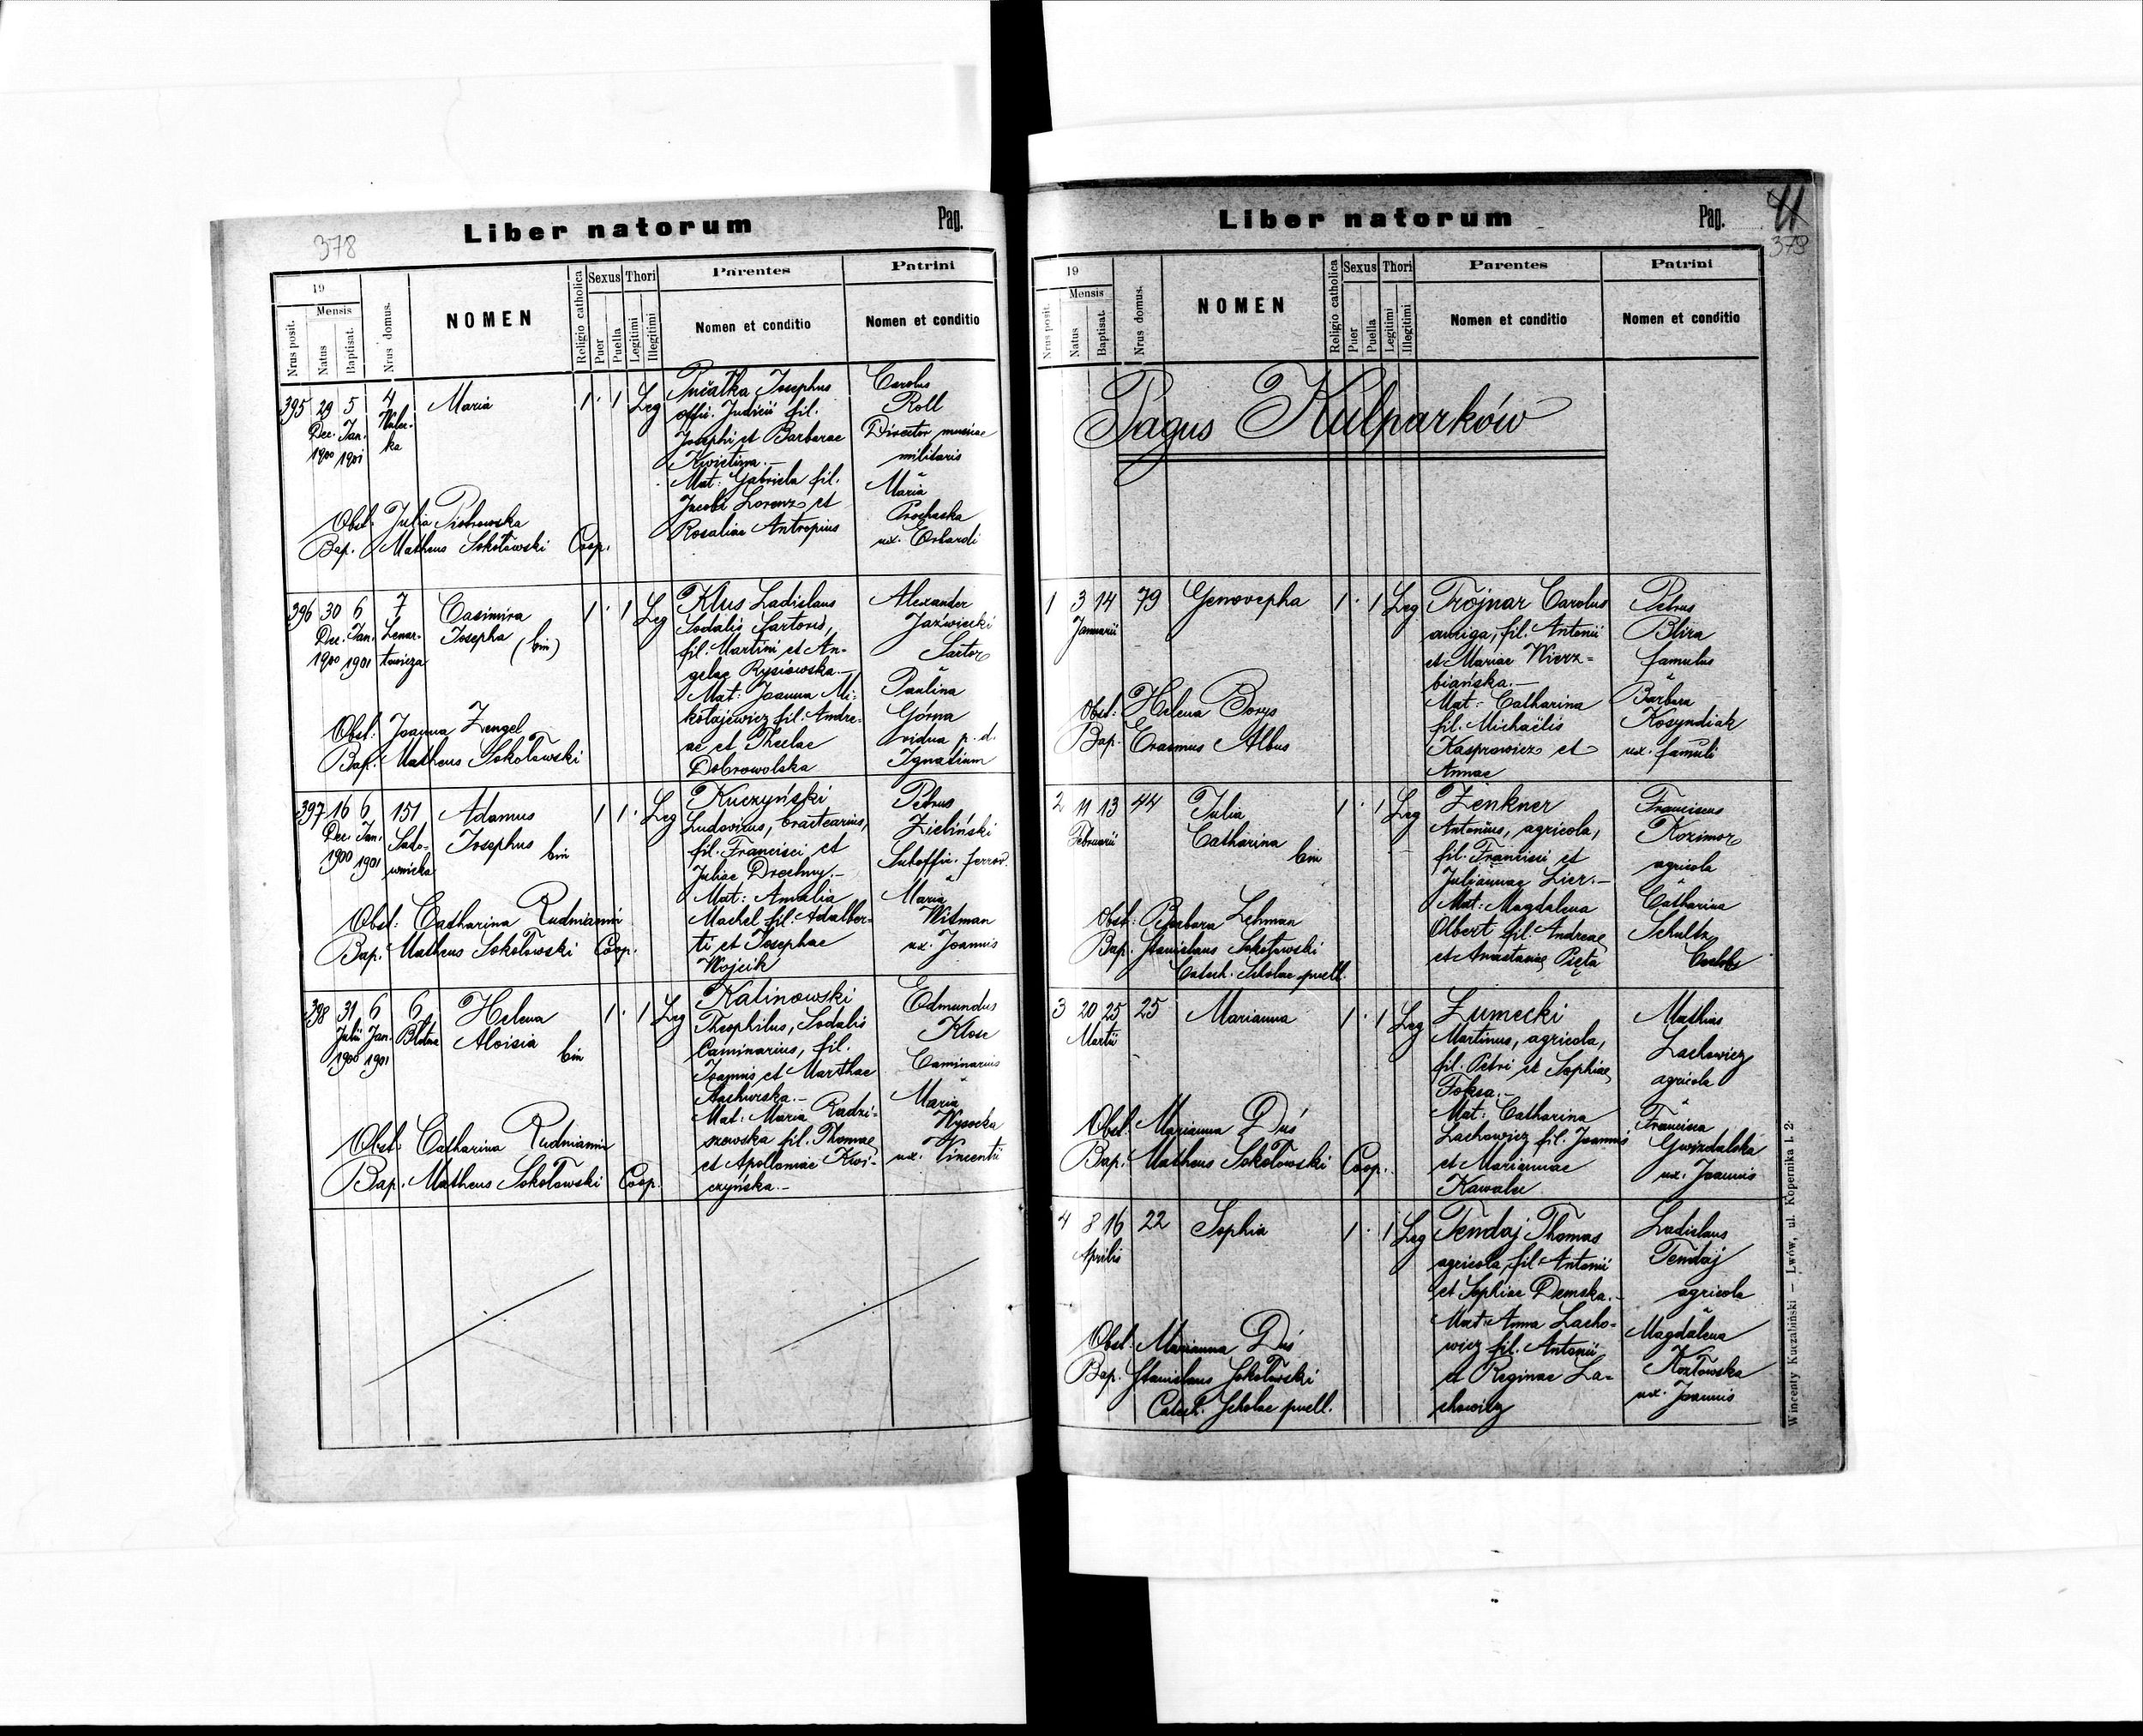 378
Liber natorum
Pag.
19
Mensis
Nrus posit.
Natus
Baptisat.
Nrus domus.
NOMEN
Religio catholica
Sexus
Puer
Puella
Thori
Legitimi
Illegitimi
Parentes
Nomen et conditio
Patrini
Nomen et conditio
395
29 Dec. 1900
5 Jan. 1901
4
Maria
1 · 1 Leg
Josephus
offic. Judicii fil.
Josephi et Barbarae
Kwietina.-
Mat: Gabriela fil.
Jacobi Lorenz et
Rosaliae Antropius
Carolus
Roll
Director musicae
militaris
Maria
Prochaska
ux. Erhardi
Obst. Julia Piotrowska
Bap. Matheus Sokołowski Coop.
396
30 Dec. 1900
6 Jan. 1901
7
Lenar-
towicza
Casimira
Josepha (bin)
1 · 1 Leg
Klus Ladislaus
Sodalis Sartoris,
fil. Martini et An-
gelae Rysiowska.-
Mat: Joanna Mi-
kołajewicz fil. Andre-
ae et Theclae
Dobrowolska
Alexander
Jaźwiecki
Sartor
Paulina
Górna
vidua p. d.
Ignatium
Obst: Joanna Zengel
Bap: Matheus Sokołowski
397
16 Dec. 1900
6 Jan. 1901
151
Sado-
wnicka
Adamus
Josephus bin
1 1 · Leg
Kuczyński
Ludovicus, bractearius,
fil. Francisci et
Juliae Drochny.-
Mat: Amalia
Machel fil. Adalber-
ti et Josephae
Wojcik
Petrus
Zieliński
Suboffic. ferrov.
Maria
Witman
ux. Joannis
Obst: Catharina Rudmiannin
Bap. Matheus Sokołowski Coop.
398
31 Julii 1900
6 Jan. 1901
6
Błotna
Helena
Aloisia bin
1 · 1 Leg
Kalinowski
Theophilus, Sodalis
Caminarius, fil.
Joannis et Marthae
Stachurska.-
Mat: Maria Radzi-
szowska fil. Thomae
et Apolloniae Kwi-
czyńska.-
Edmundus
Klose
Caminarius
Maria
Wysocka
ux. Vincentii
Obst: Catharina Rudmiannin
Bap. Matheus Sokołowski Coop.
Liber natorum
Pag.
41
379
19
Mensis
Nrus posit.
Natus
Baptisat.
Nrus domus.
NOMEN
Religio catholica
Sexus
Puer
Puella
Thori
Legitimi
Illegitimi
Parentes
Nomen et conditio
Patrini
Nomen et conditio
Pagus Kulparków
1
3 14
Januarii
79
Genovepha
1 · 1 Leg
Trojnar Carolus
auriga, fil. Antonii
et Mariae Wierz-
biańska.-
Mat: Catharina
fil. Michaëlis
Kasprowicz et
Annae
Petrus
Blira
famulus
Barbara
Kosyndiak
ux. famuli
Obst: Helena Borys
Bap. Erasmus Albus
2
11 13
Februarii
44
Julia
Catharina
bin
1 · 1 Leg
Zenkner
Antonius, agricola,
fil. Francisci et
Juliannae Lier.-
Mat: Magdalena
Olbert fil. Andreae
et Anastasiae Pięta
Franciscus
Kozimor
agricola
Catharina
Schultz
Obst: Barbara Lehman
Bap. Stanislaus Sokołowski
Catech. Scholae puell.
3
20 25
Martii
25
Marianna
1 · 1 Leg
Żumecki
Martinus, agricola,
fil. Petri et Sophiae
Foksa.-
Mat: Catharina
Lachowicz fil. Joannis
et Mariannae
Kawalec
Mathias
Lachowicz
agricola
Francisca
Gwizdalska
ux. Joannis
Obst. Marianna Duś
Bap. Matheus Sokołowski Coop.
4
8 16
Aprilis
22
Sophia
1 · 1 Leg
Tendaj Thomas
agricola, fil. Antonii
et Sophiae Demska.-
Mat: Anna Lacho-
wicz fil. Antonii
et Reginae La-
chowicz
Ladislaus
Tendaj
agricola
Magdalena
Kozłowska
ux. Joannis
Obst. Marianna Duś
Bap. Stanislaus Sokołowski
Catech. Scholae puell.
Wincenty Kuczabiński — Lwów, ul. Kopernika l. 2